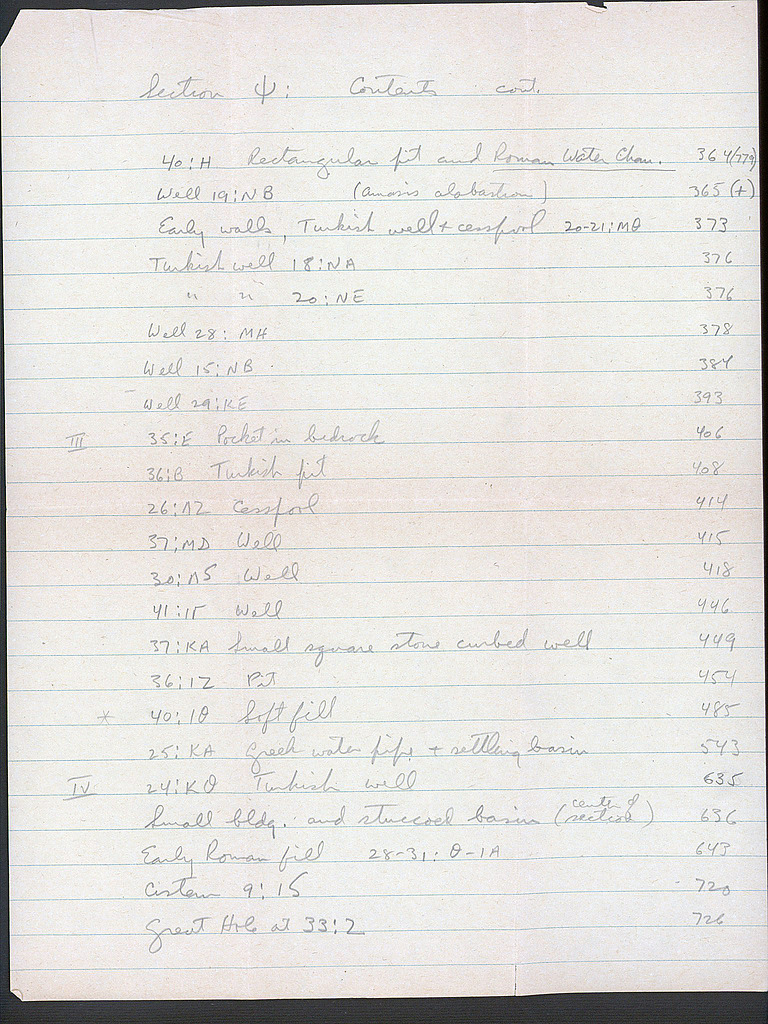 Section Ψ: Contents cont.
40:H Rectangular pit and Roman Water Chan. 364(779)
Well 19:NB (Amasis alabastron) 365 (+)
Early walls, Turkish well + cesspool 20-21:MΘ 373
Turkish well 18:NA 376
" " 20:NE 376
Well 28:MH 378
Well 15:NB 384
Well 29:KE 393
III 35:E Pocket in bedrock 406
36:B Turkish pit 408
26:ΛZ Cesspool 414
37:MD Well 415
30:ΛS Well 418
41:IΓ Well 446
37:KA Small square stone curbed well 449
36:IZ Pit 454
* 40:IΘ Soft fill 485
25:KA Greek water pipe + settling basin 543
IV 24:KΘ Turkish well 635
Small bldg. and stuccoed basin (center of section) 636
Early Roman fill 28-31:Θ-IA 643
Cistern 9:IS 720
Great Hole at 33:Z 726